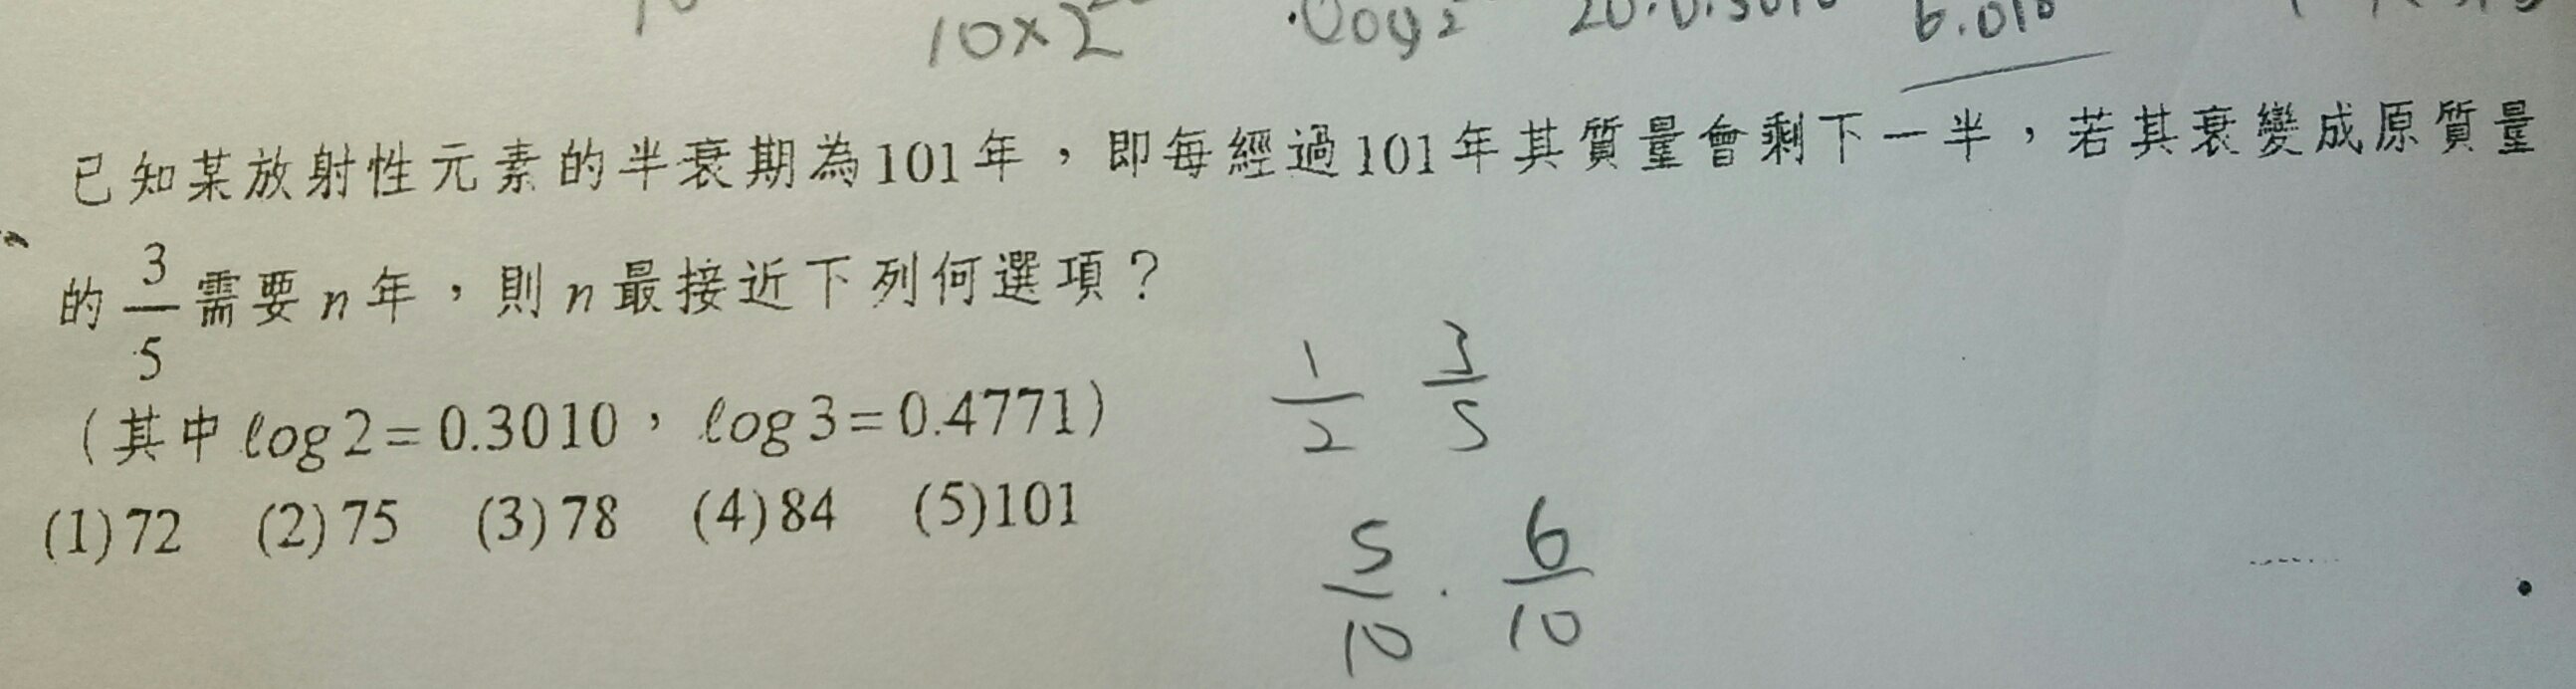 10×2
已知某放射性元素的半衰期為101年，即每經過101年其質量會剩下一半，若其衰變成原質量
的 3/5 需要n年，則n最接近下列何選項？
(其中log2=0.3010，log3=0.4771)
(1)72 (2)75 (3)78 (4)84 (5)101
1/2 3/5
5/10 . 6/10